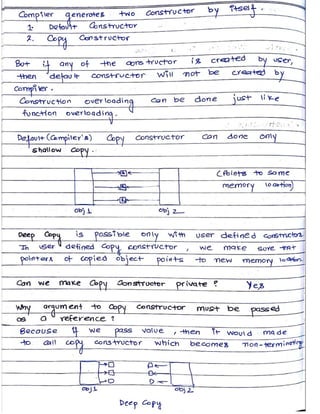 Compiler generates two constructor by itself.
1. Default Constructor
2. Copy Constructor
But if any of the constructor is created by user,
then default constructor will not be created by
Compiler.
Construction overloading can be done just like
function overloading.
Default (Compiler's) Copy constructor can done only
shallow copy.
(Points to same
memory location)
obj 1 obj 2
Deep Copy is possible only with user defined constructor
In user defined copy constructor, we make sure that
pointers of copied object points to new memory location.
Can we make Copy Constructor private ? Yes
Why argument to copy constructor must be passed
as a reference ?
Because if we pass value, then it would made
to call copy constructor which becomes non-terminating
obj1 obj2
Deep Copy